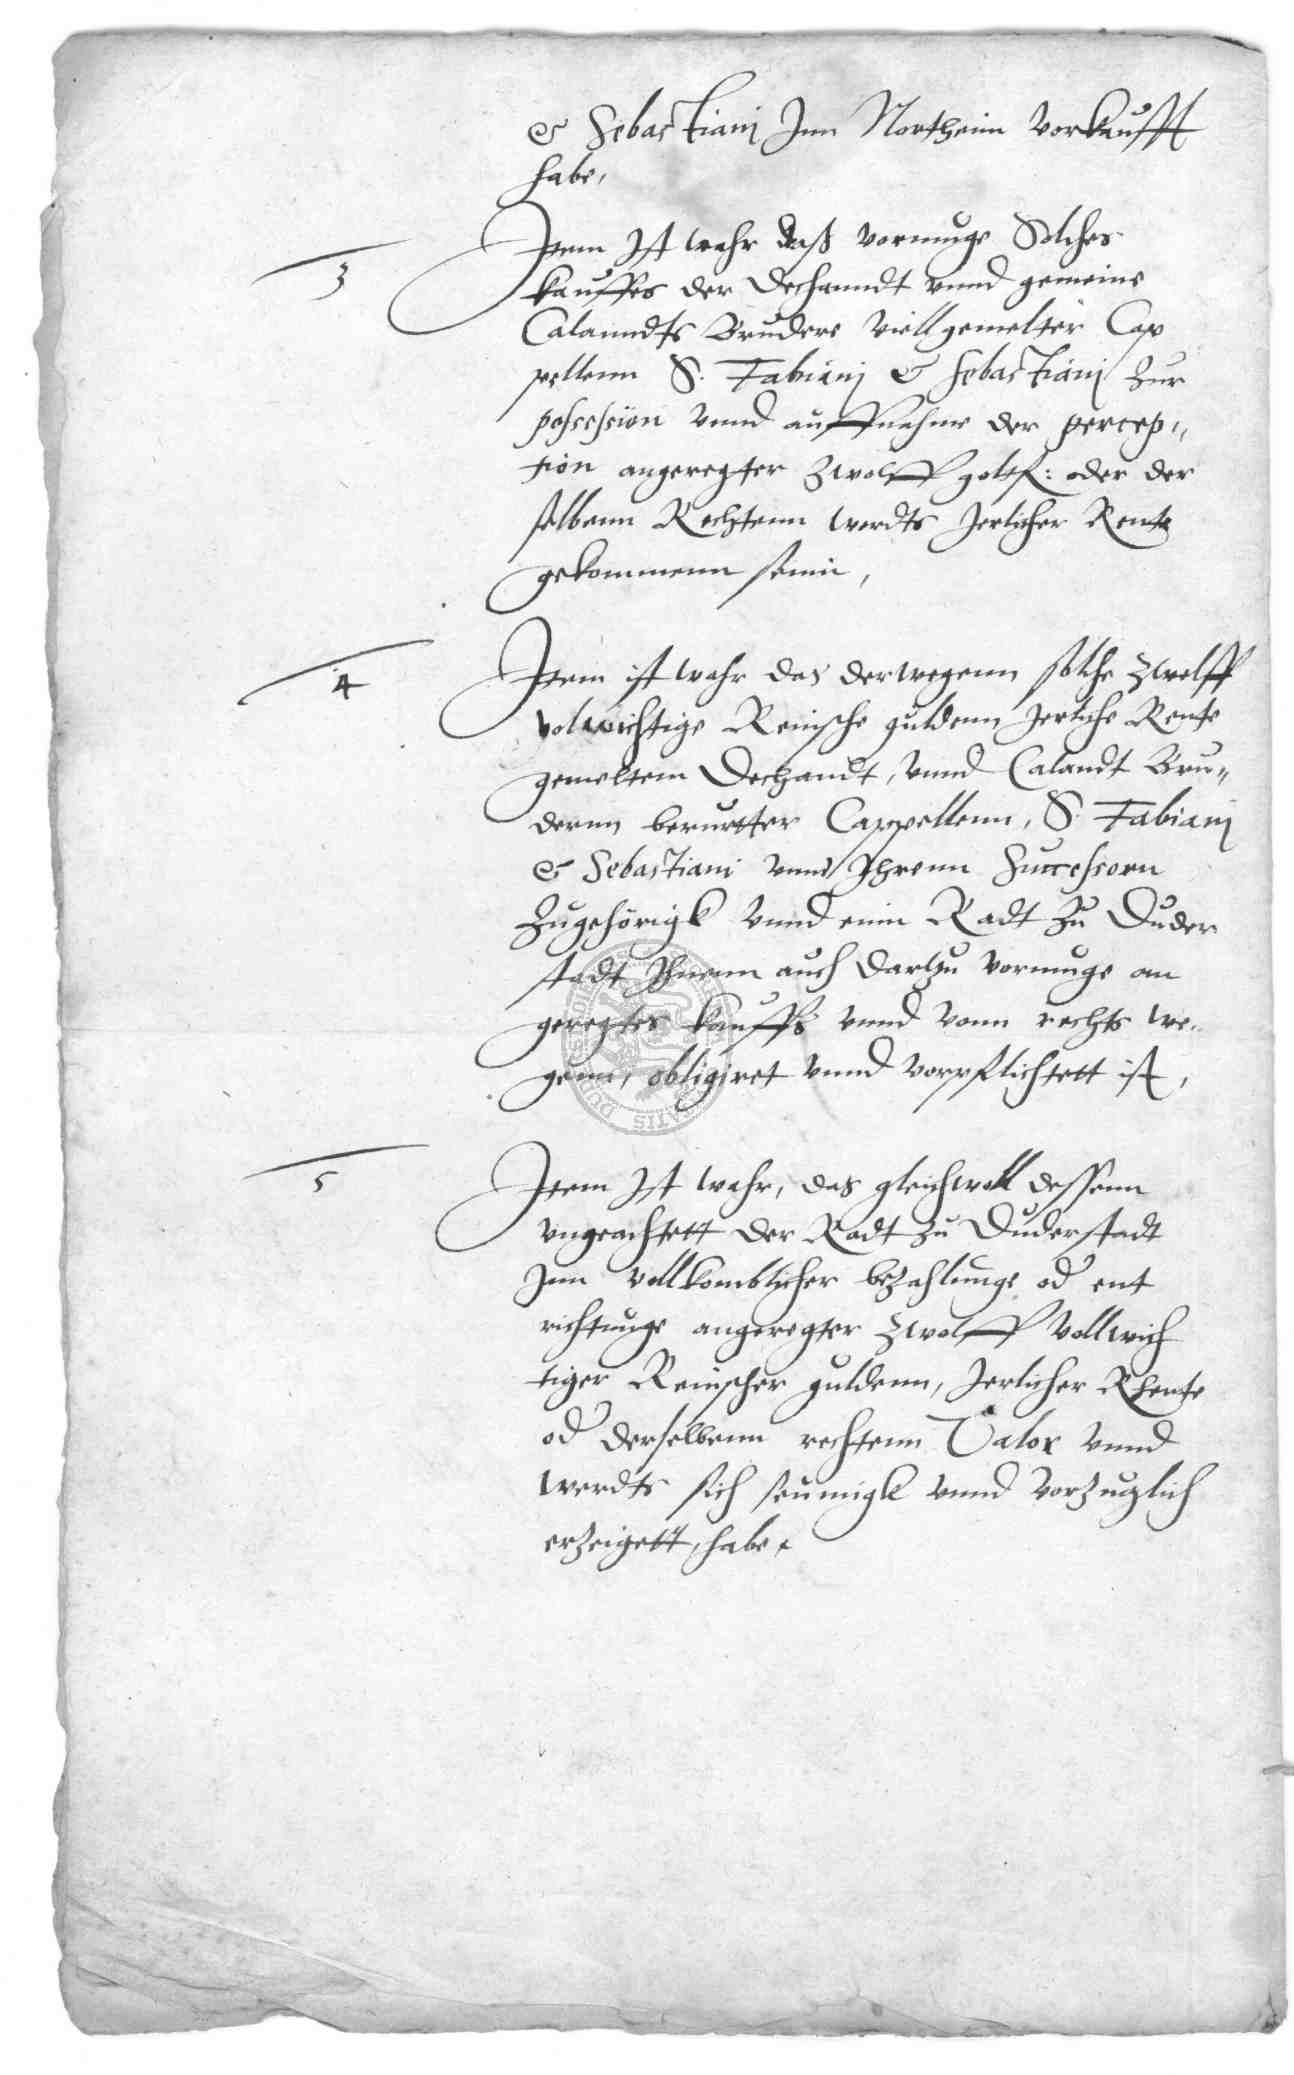 & Sebastianj Jnn Northeim vorkaufft
habe,
3
Jtem Jst wahr daß vormuge Solches
kauffes der Dechanndt vnnd gemeine
Calanndts Brudere viellgemelter Cap
pellenn S. Fabianj & Sebastianj Zur
possession vnnd auffnahme der percep„
tion angeregter Zwolff goltfl: oder der
selbenn Rechtenn werdts Jerlicher Rente
gekommenn seinn,
4
Jtem ist wahr das derwegenn solche Zwolff
volwichtige Reinische guldenn Jerliche Rente
gemeltem Dechandt, vnnd Calandt Bru„
dernn berurtter Cappellenn, S. Fabianj
& Sebastiani vnnd Jhrenn Successorn
Zugehörigk vnnd einn Radt Zu Duder
stadt Jhnenn auch dartzu vormuge an
geregtes kauffs vnnd vonn rechts we„
genn, obligiret vnnd vorpflichtett ist,
5
Jtem Jst wahr, das gleichwoll dessenn
vngeachtett der Radt Zu Duderstadt
Jnn vollkomblicher bezahlunge od ent
richtunge angeregter Zwolff vollwich
tiger Reinischer guldenn, Jerlicher Rhente
od derselbenn rechtenn Valor vnnd
werdts sich seumigk vnnd vorzuglich
erzeigett, habe,